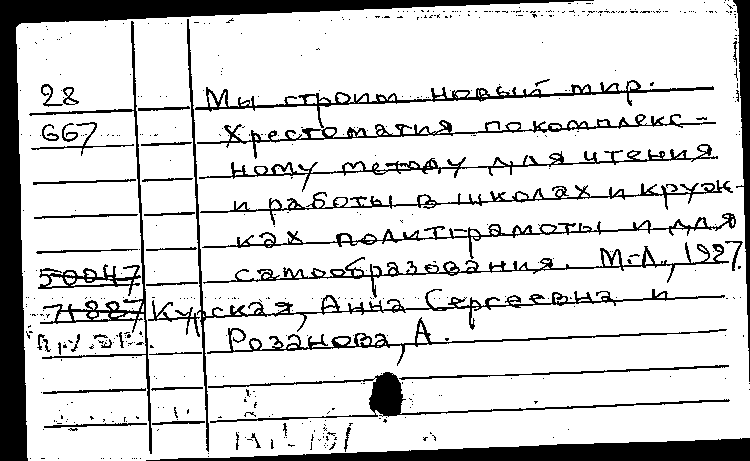 28 Мы строим новый мир.
667 Хрестоматия по комплекс-
ному методу для чтения
и работы в школах и круж-
ках политграмоты и для
50047 самообразования. М.-Л., 1927.
71887 Курская, Анна Сергеевна и
Розанова, А.